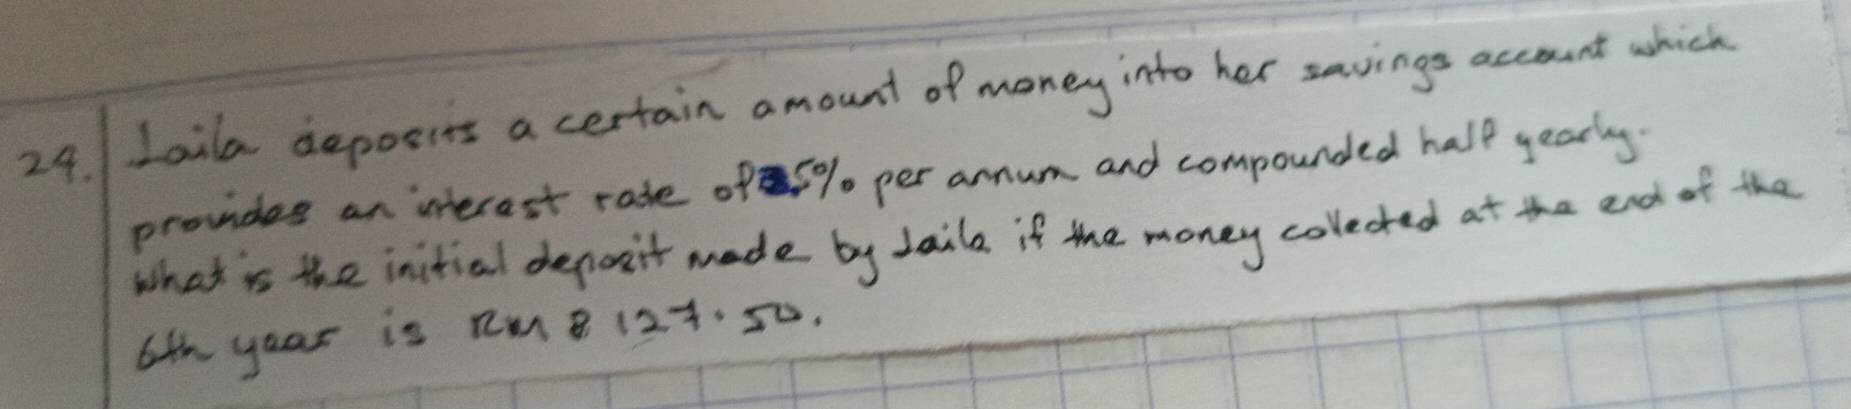 24. Laila deposits a certain amount of money into her savings account which
provides an interest rate of 5% per annum and compounded half yearly.
What is the initial deposit made by Laila if the money collected at the end of the
6th year is RM 8 127.50.